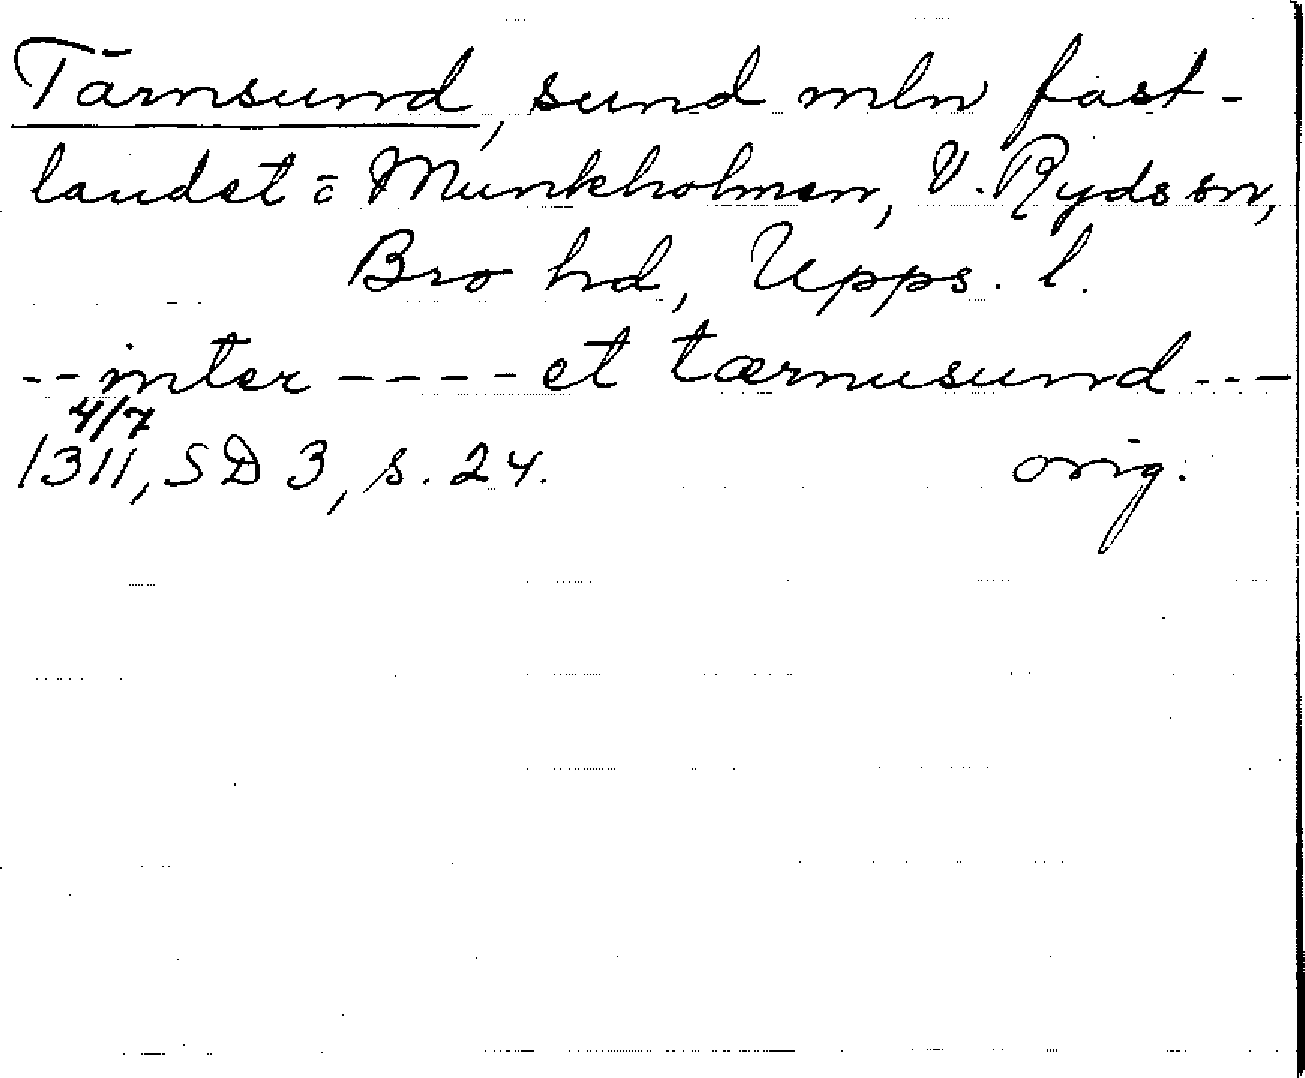 Tärnsund, sund mln fast-
landet o Munkholmen, V. Ryds sn,
Bro hd, Upps. l.
-- inter ---- et tærnusund ---
4/7
1311, SD 3, s. 24. orig.